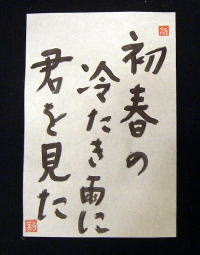 初春の
冷たき雨に
君を見た